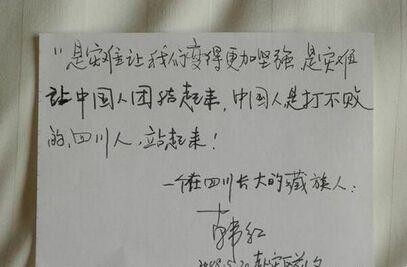 "是灾难让我们变得更加坚强,是灾难
让中国人团结起来,中国人是打不败
的,四川人,站起来!
一个在四川长大的藏族人:
韩红